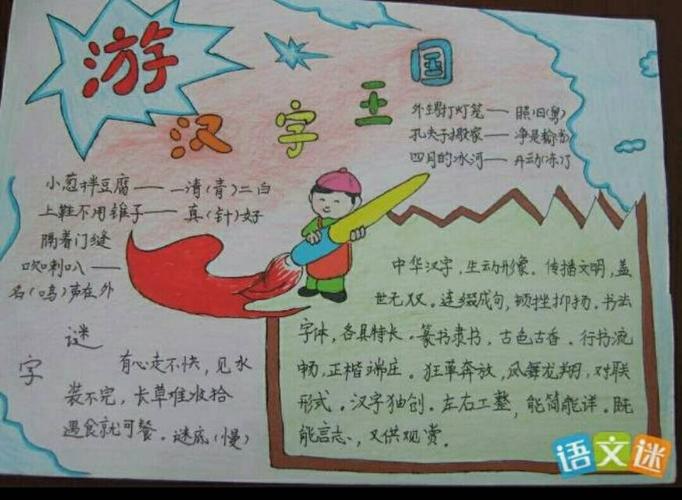 游
汉字王国
外甥打灯笼——照旧(舅)
孔夫子搬家——净是输(书)
四月的冰河——开动(冻)了
小葱拌豆腐——一清(青)二白
上鞋不用锥子——真(针)好
隔着门缝
吹喇叭——
名(鸣)声在外
字谜
有心走不快，见水
装不完，长草难收拾
遇食就可餐。谜底(慢)
中华汉字，生动形象。传播文明，盖
世无双。连缀成句，顿挫抑扬。书法
字体，各具特长。篆书隶书，古色古香。行书流
畅，正楷端庄。狂草奔放，凤舞龙翔，对联
形式。汉字独创。左右工整，能简能详。既
能言志、又供观赏。
语文迷